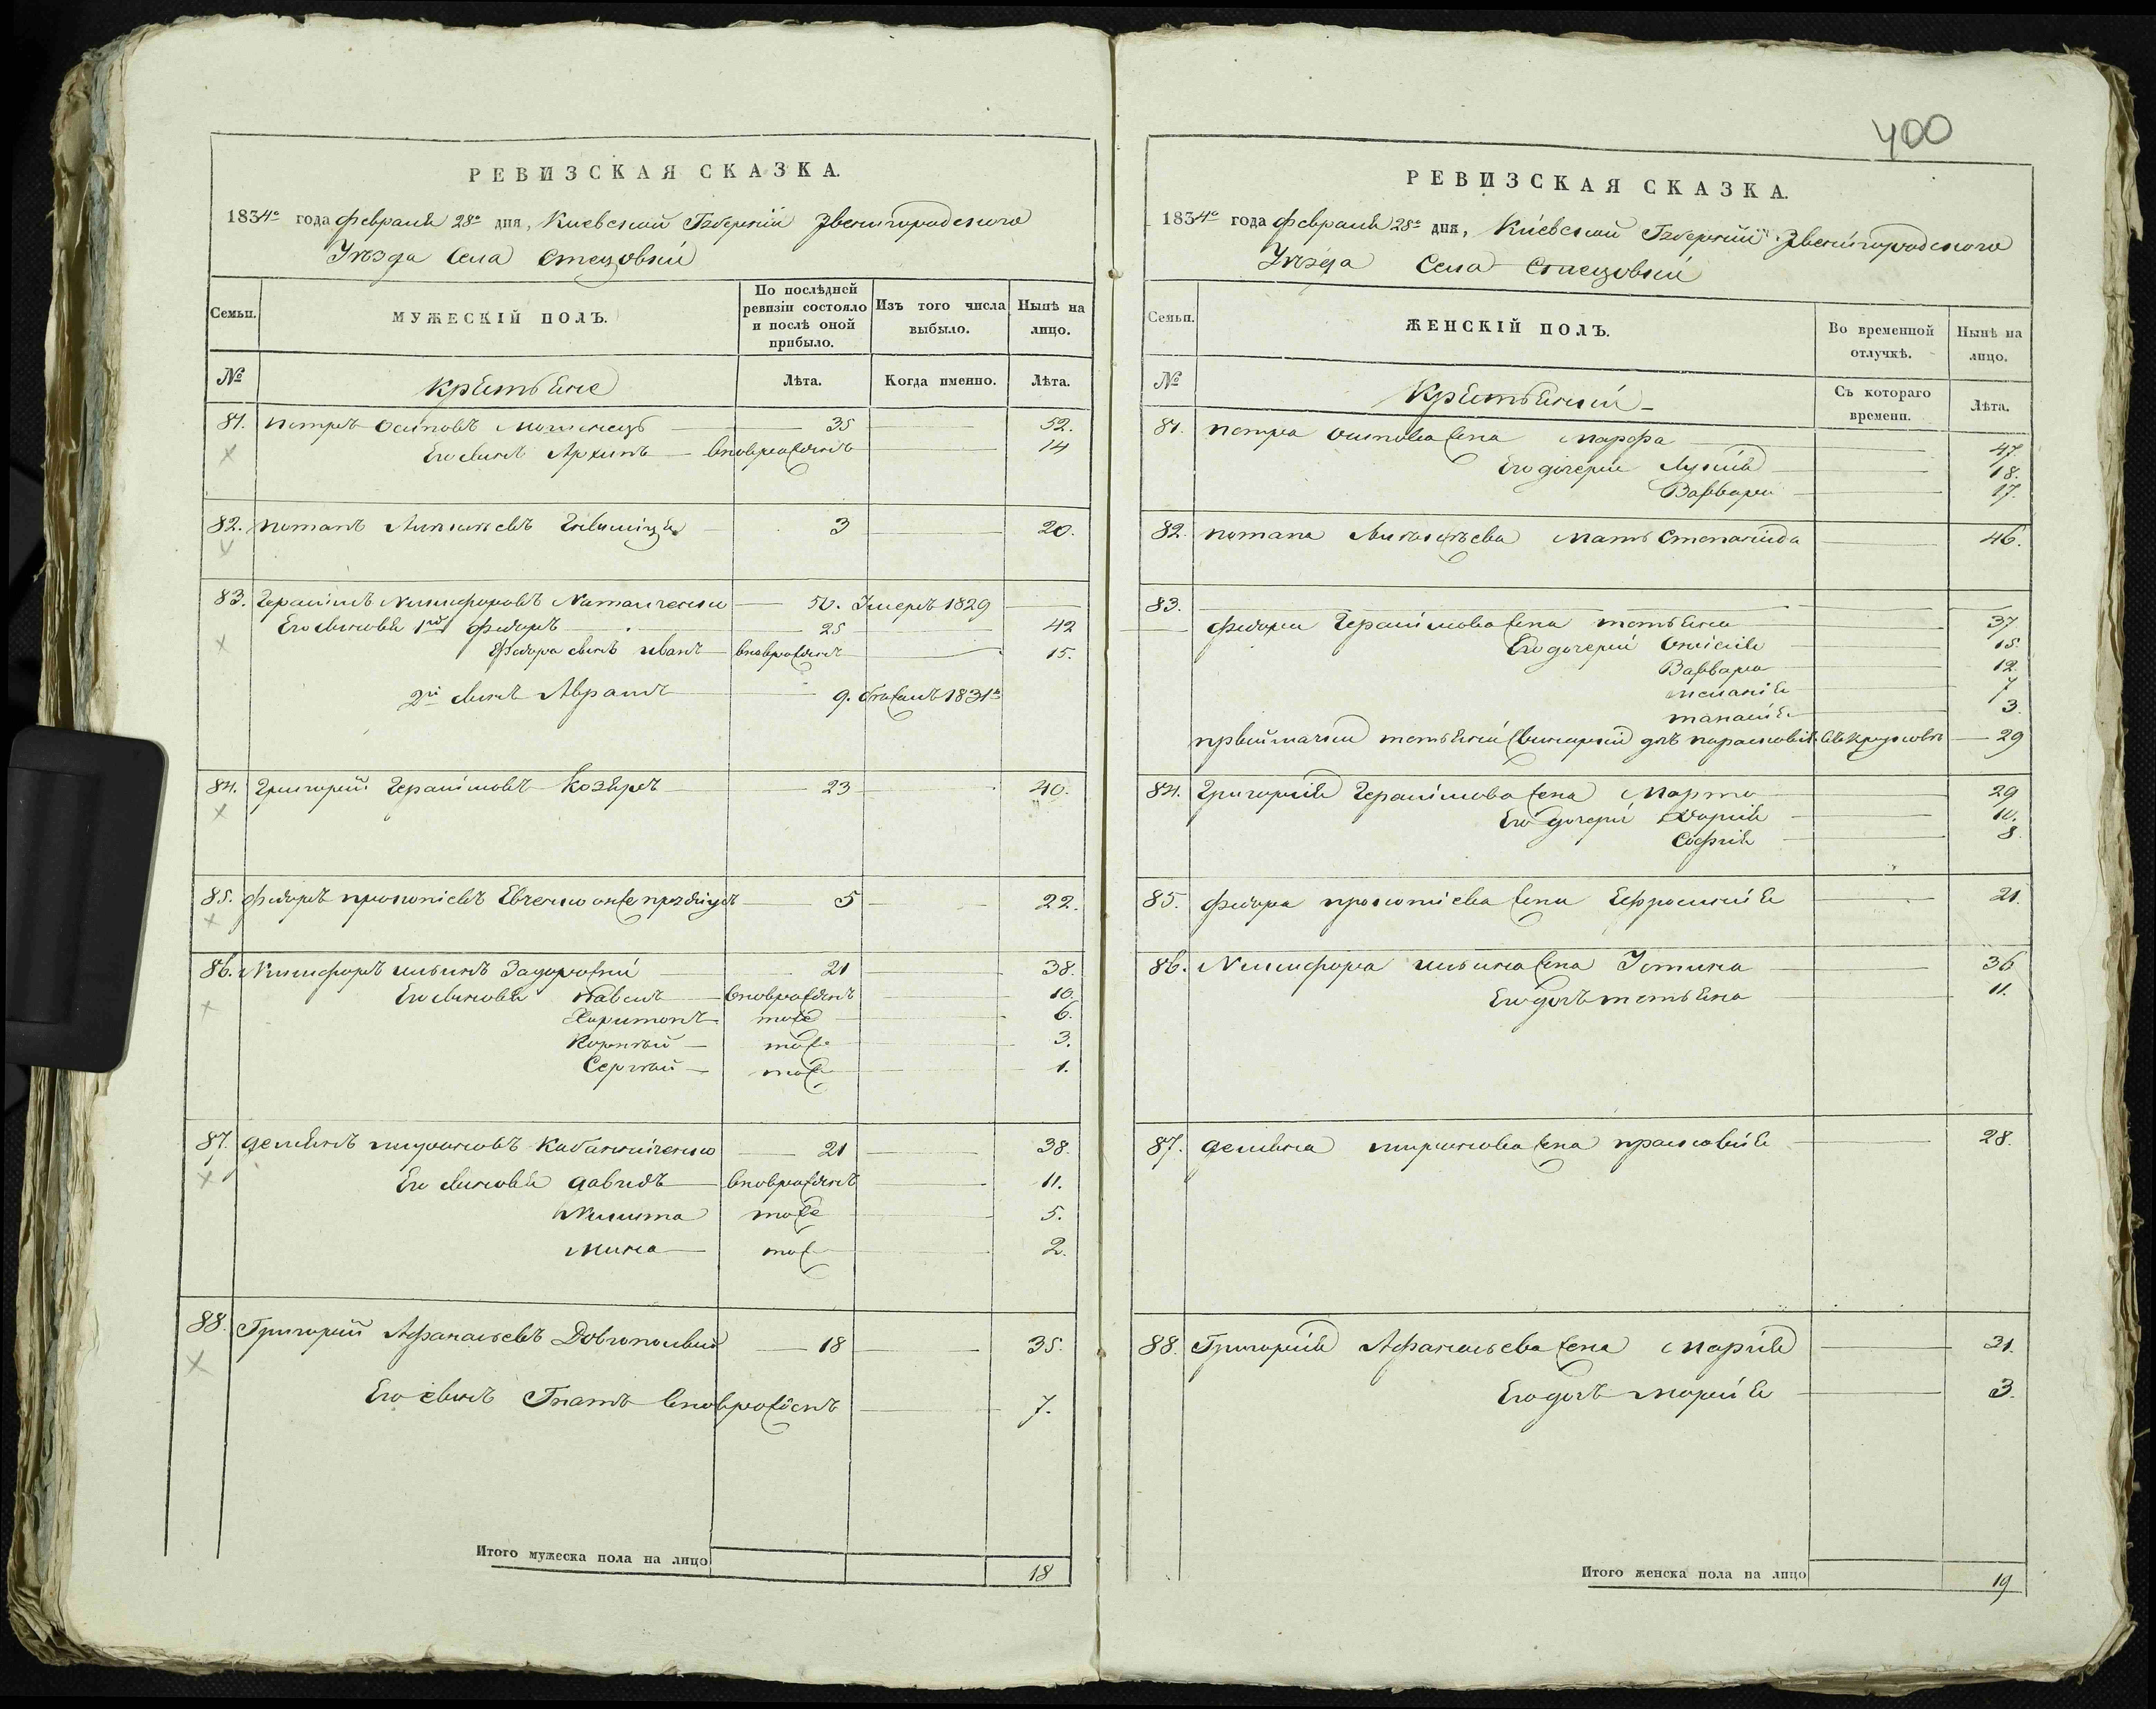 400
РЕВИЗСКАЯ СКАЗКА.
1834го года февраля 28го дня, Киевской Губернiи Звенигородского
Уѣзда Села Стецовки
Семьи.
МУЖЕСКIЙ ПОЛЪ.
По послѣдней ревизiи состояло и послѣ оной прибыло.
Изъ того числа выбыло.
Нынѣ на лицо.
№
Крестьяне
Лѣта.
Когда именно.
Лѣта.
81. Петръ Осиповъ 35 52.
Его сынъ Архипъ вновърожденъ 14
82. Потапъ 3 20.
83. Герасимъ Никифоровъ 50. Умеръ 1829
Его сыновья 1й Федоръ 25 42
Федора сынъ Иванъ вновърожденъ 15.
2й сынъ Абрамъ 9. 1831го
84. Григорiй Герасимовъ Козыръ 23 40.
85. Федоръ Прокопiевъ Евченко онже 5 22.
86. Никифоръ Ильинъ Задорожнiй 21 38.
Его сыновья Павелъ вновърожденъ 10.
Харитонъ тоже 6.
Корнѣй тоже 3.
Сергѣй тоже 1.
87. Демьянъ Мироновъ 21 38.
Его сыновья Давидъ вновърожденъ 11.
Никита тоже 5.
Мина тоже 2.
88. Григорiй Афанасьевъ Довгополый 18 35.
Его сынъ Гнатъ вновърожденъ 7.
Итого мужеска пола на лицо 18
РЕВИЗСКАЯ СКАЗКА.
1834го года февраля 28го дня, Киевской Губернiи Звенигородского
Уѣзда Села Стецовки
Семьи.
ЖЕНСКIЙ ПОЛЪ.
Во временной отлучкѣ.
Нынѣ на лицо.
№
Крестьянки
Съ котораго времени.
Лѣта.
81. Петра Осипова жена Марфа 47.
Его дочери Лукiя 18.
Варвара 17.
82. Потапа мать Степанида 46.
83.
Федора Герасимова жена Татьяна 37
Его дочери Онисия 15.
Варвара 12.
Меланiя 7
3.
29
84. Григорiя Герасимова жена Марта 29
Его дочери Дарiя 10.
Софiя 8
85. Федора Прокопiева жена Ефросинiя 21.
86. Никифора Ильина жена Устина 36
Его дочь Татьяна 11.
87. Демьяна Миронова жена Прасковiя 28.
88. Григорiя Афанасьева жена Марiя 31.
Его дочь Марiя 3.
Итого женска пола на лицо 19